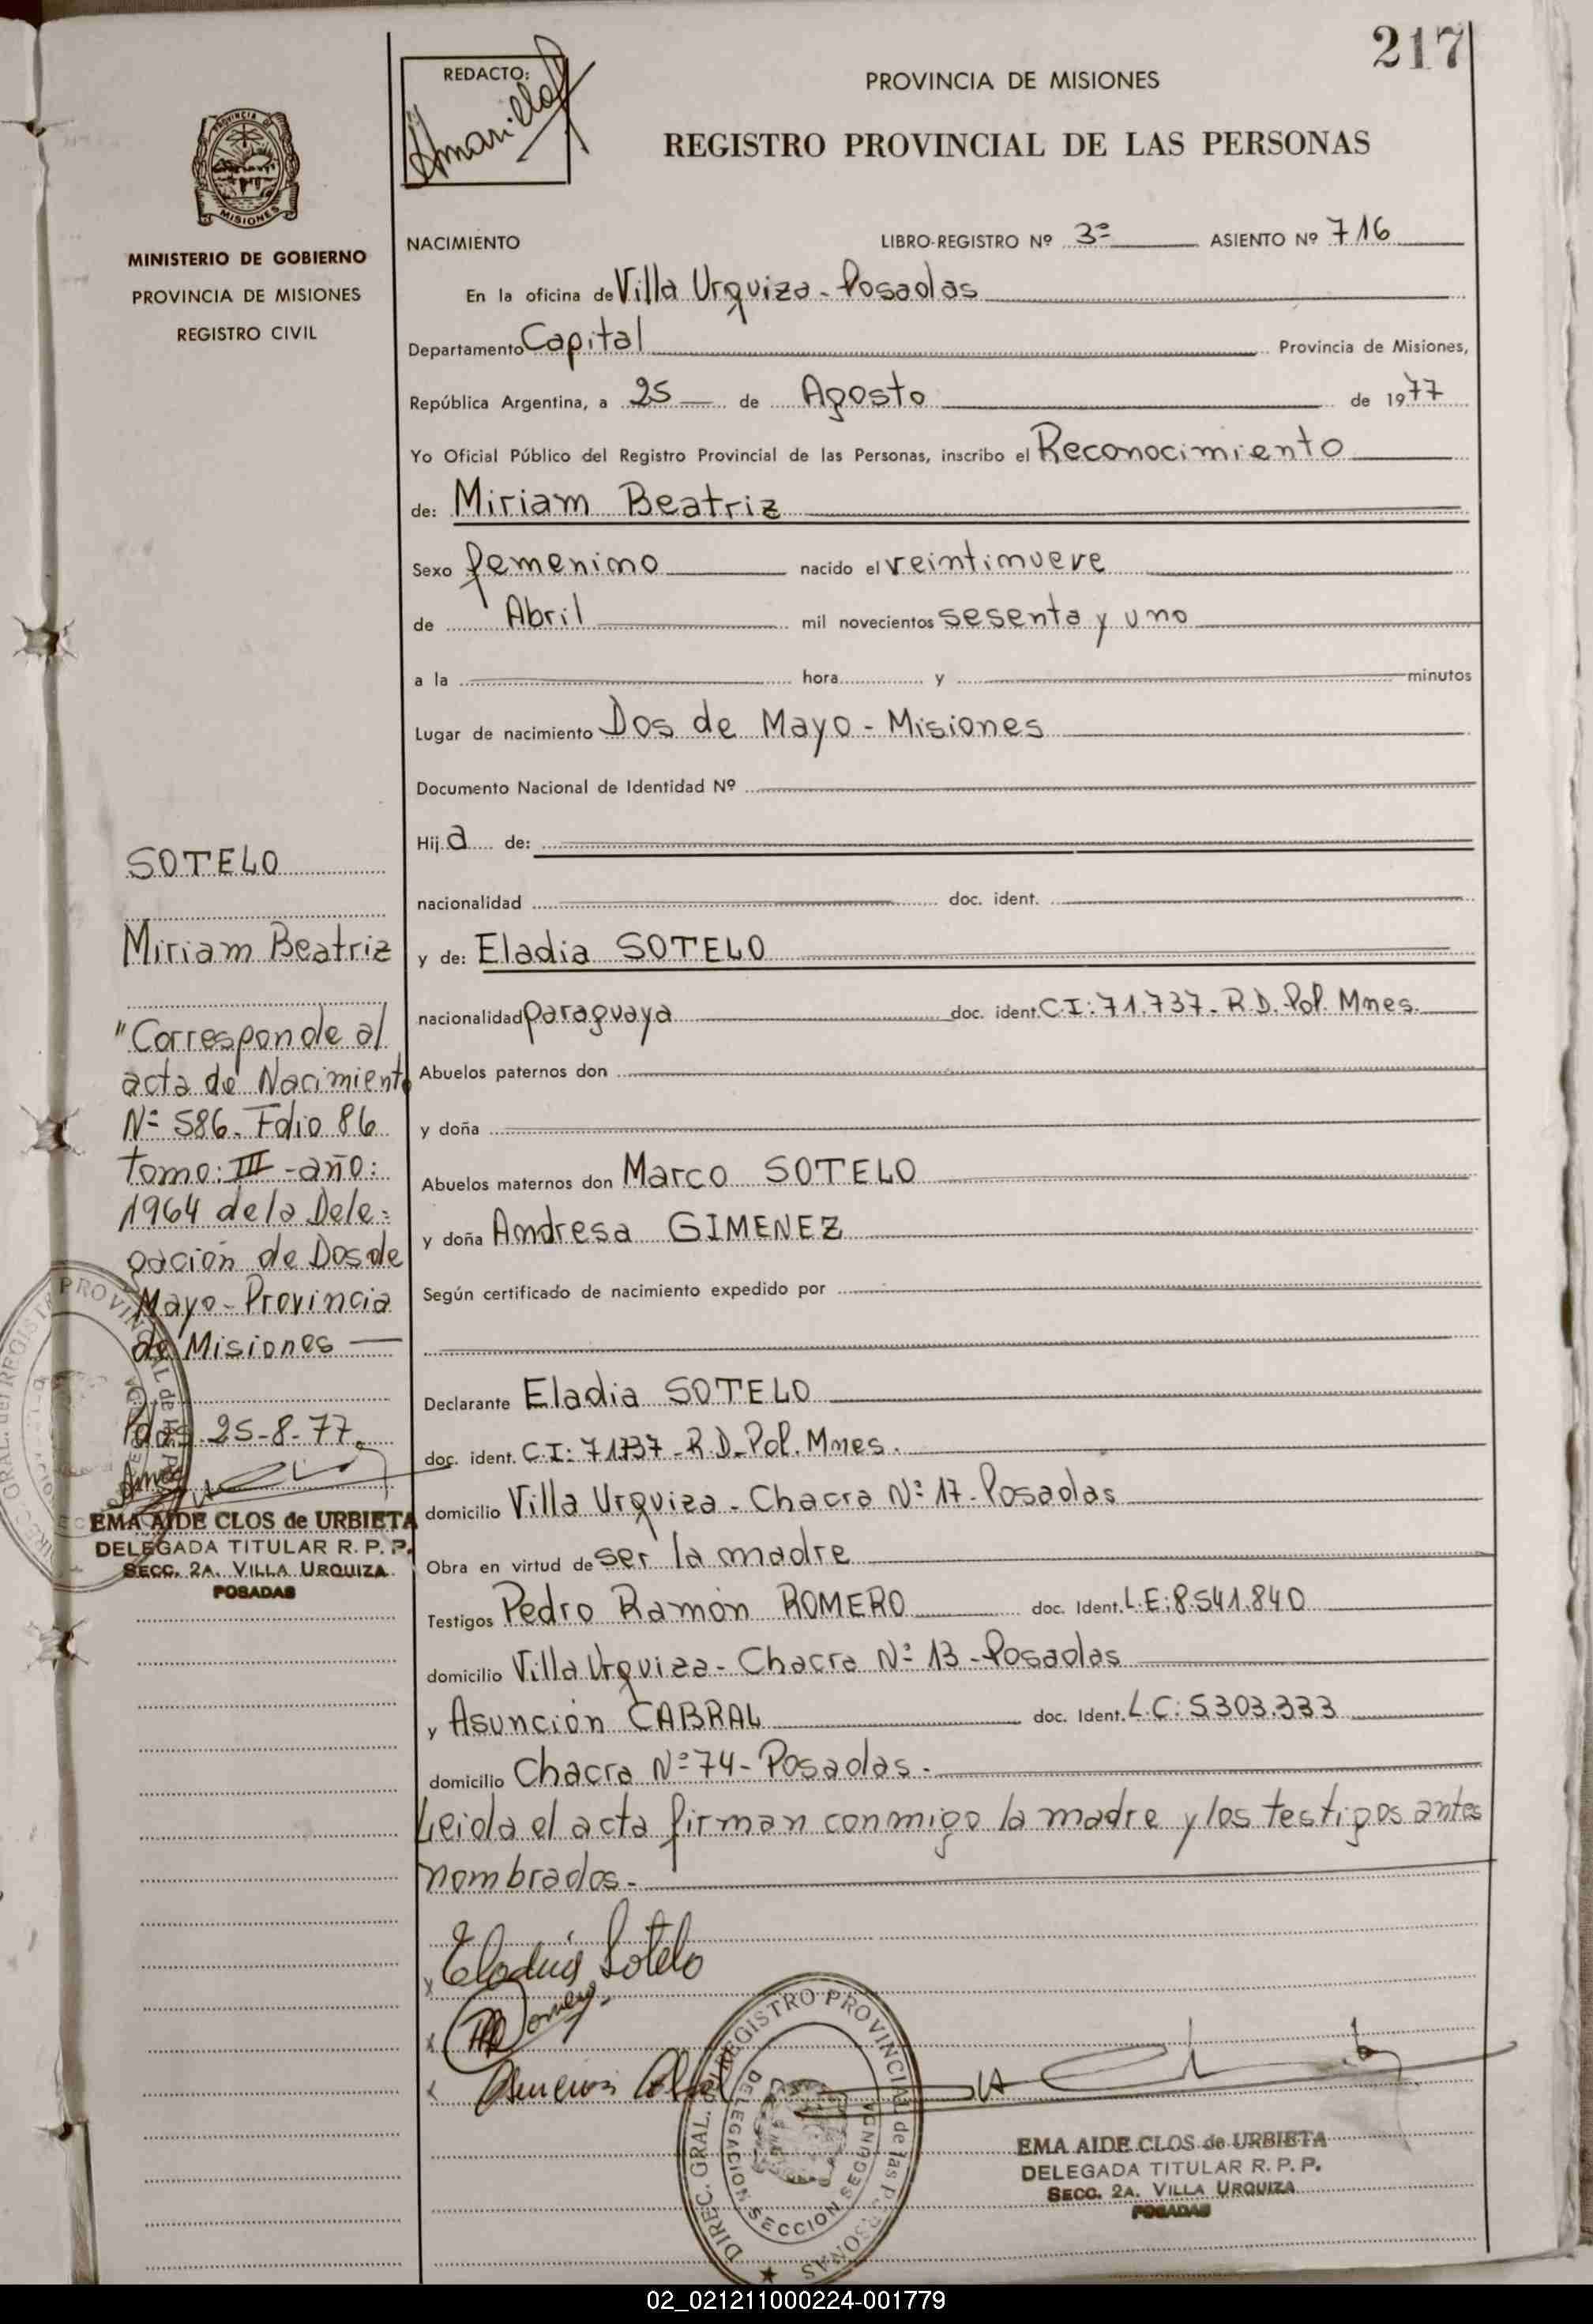 217
REDACTO:
PROVINCIA DE MISIONES
REGISTRO PROVINCIAL DE LAS PERSONAS
PROVINCIA DE
MISIONES
MINISTERIO DE GOBIERNO
PROVINCIA DE MISIONES
REGISTRO CIVIL
NACIMIENTO LIBRO-REGISTRO Nº 3º ASIENTO Nº 716
En la oficina de Villa Urquiza - Posadas
Departamento Capital Provincia de Misiones,
República Argentina, a 25 de Agosto de 1977
Yo Oficial Público del Registro Provincial de las Personas, inscribo el Reconocimiento
de: Miriam Beatriz
Sexo femenino nacido el veintinueve
de Abril mil novecientos sesenta y uno
a la hora y minutos
Lugar de nacimiento Dos de Mayo - Misiones
Documento Nacional de Identidad Nº
Hija de:
nacionalidad doc. ident.
y de: Eladia SOTELO
nacionalidad paraguaya doc. ident. C.I: 71.737 - R.D. Pol. Mnes.
Abuelos paternos don
y doña
Abuelos maternos don Marco SOTELO
y doña Andresa GIMENEZ
Según certificado de nacimiento expedido por
Declarante Eladia SOTELO
doc. ident. C.I: 71737 - R.D. Pol. Mnes.
domicilio Villa Urquiza - Chacra Nº 17 - Posadas
Obra en virtud de ser la madre
Testigos Pedro Ramón ROMERO doc. Ident. L.E: 8.541.840
domicilio Villa Urquiza - Chacra Nº 13 - Posadas
y Asunción CABRAL doc. Ident. L.C: 5.303.333
domicilio Chacra Nº 74 - Posadas.
Leida el acta firman conmigo la madre y los testigos antes
nombrados.
SOTELO
Miriam Beatriz
"Corresponde al
acta de Nacimiento
Nº 586. Folio 86
tomo: III - año:
1964 de la Dele=
gación de Dos de
Mayo - Provincia
de Misiones
Pdas. 25-8-77.
EMA AIDE CLOS de URBIETA
DELEGADA TITULAR R. P. P.
SECC. 2A. VILLA URQUIZA
POSADAS
Eladia Sotelo
DIREC. GRAL. del REGISTRO PROVINCIAL de las PERSONAS
DELEGACION SECCION SEGUNDA
EMA AIDE CLOS de URBIETA
DELEGADA TITULAR R. P. P.
SECC. 2A. VILLA URQUIZA
POSADAS
02_021211000224-001779